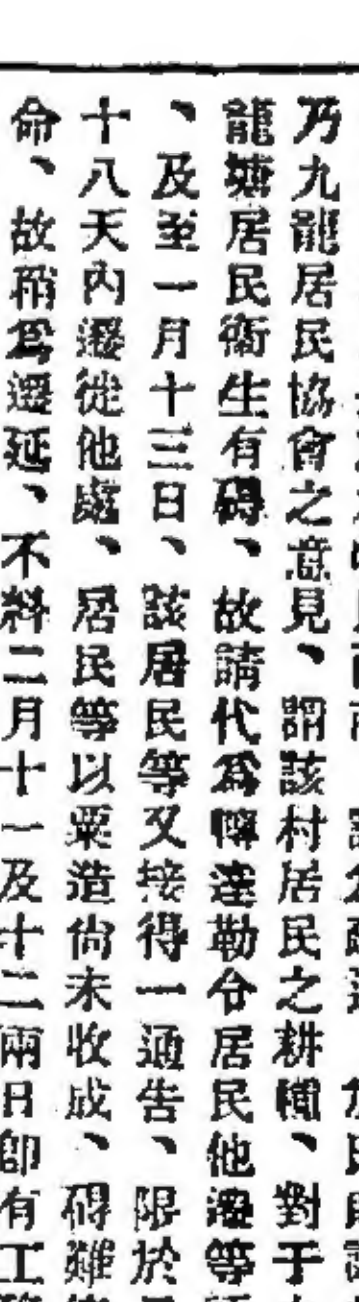 乃九龍居民協會之意見、謂該村居民之耕種、對于
龍塘居民衞生有碍、故請代爲轉達勒令居民他遷等
、及至一月十三日、該居民等又接得一通告、限於
十八天內遷徙他處、居民等以粟造尙未收成、碍難
命、故稍爲遷延、不料二月十一及十二兩日卽有工